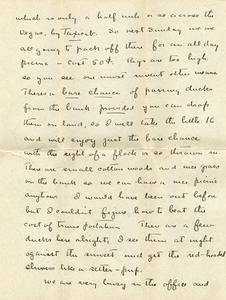 which is only a half mile or so across the
Vegas, by Taxicab. So next Sunday we
all going to pack off there for an all day
picnic – Cost 50¢. Pigs are too high
so you see one must invent other means
There's a bare chance of passing ducks
from the bank provided you can drop
them on land, so I will take the little 16
and will enjoy just the bare chance
with the sight of a flock or so thrown in.
There are small cotton woods and nice grass
on the banks so we can have a nice picnic
anyhow. I would have been out before
but I couldn't figure how to beat the
cost of transportation. There are a few
ducks here alright, I see them at night
against the sunset and get the red-hooked
shivers like a setter-pup.
We are very busy in the office and